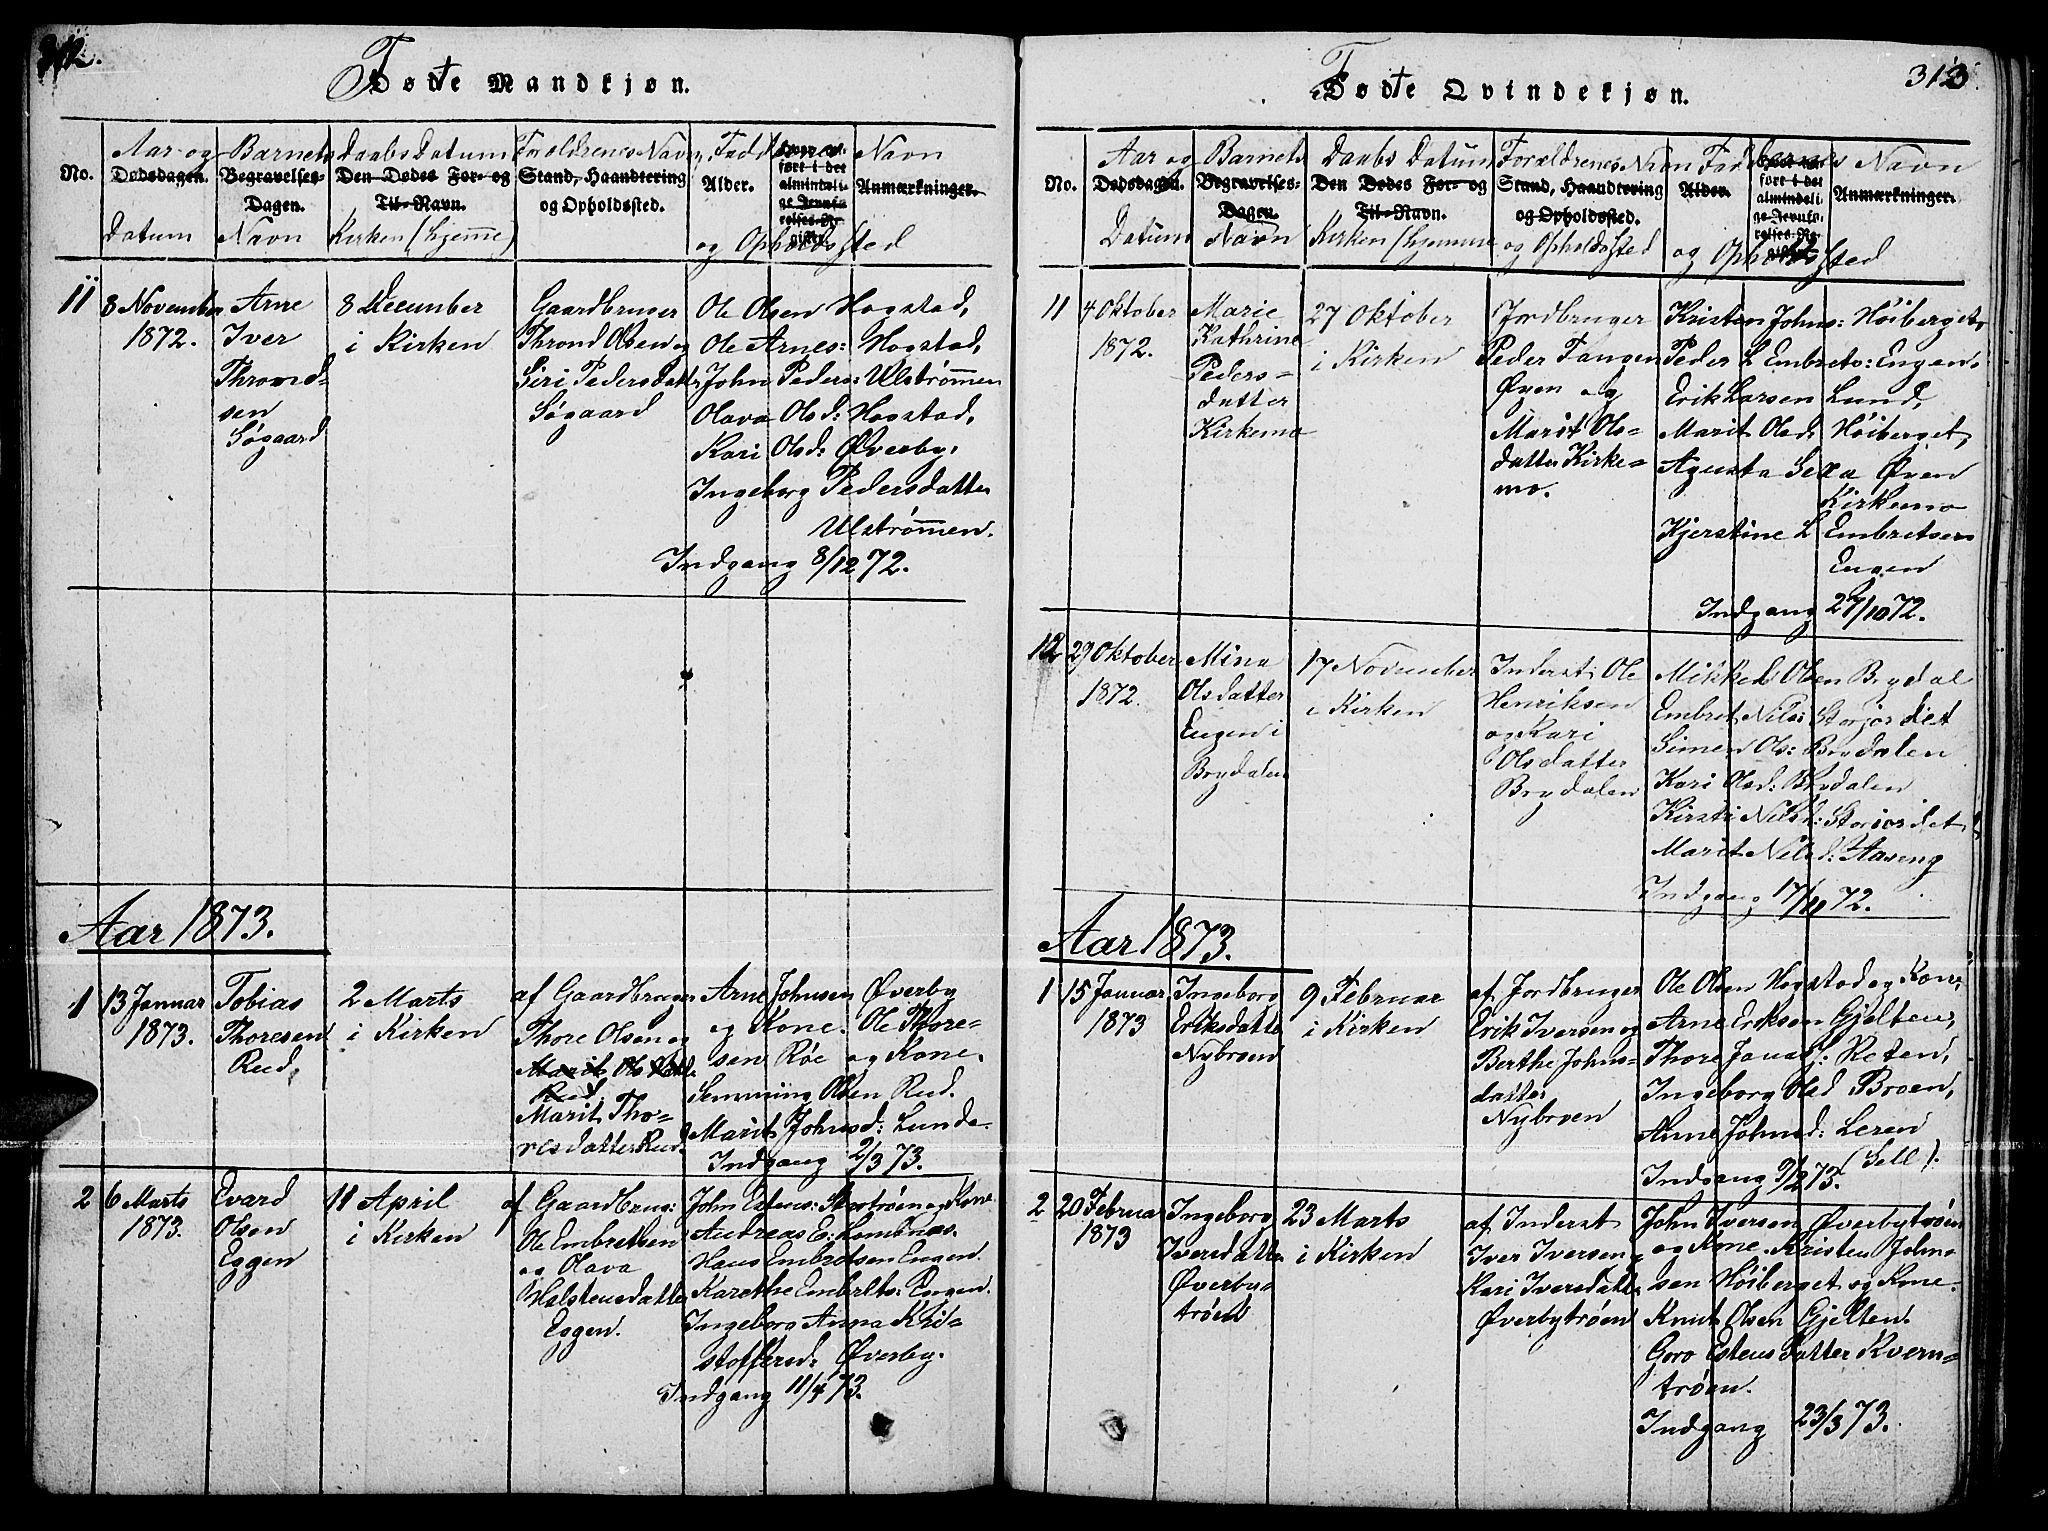 312.
Fødte Mandkjøn.
No.
Aar og
Dødsdagen.
Datum
Barnets
Begravelses-
Dagen.
Navn
Daabs Datum
Den Dødes For- og
Til-Navn.
Kirken (hjemme)
Forældrenes Navn
Stand, Haandtering
og Opholdssted.
Alder.
Anmærkninger.
Navn
og Opholdssted
11
8 November
1872.
Arne
Iver
Thrond-
sen
Søgaard
8 December
i Kirken
Gaardbruger
Thrond Olsen og
Siri Pedersdatter
Søgaard
Ole Olsen Hogstad,
Ole Arnes: Hogstad,
John Peders: Ulstrømmen
Olava Olsd: Hogstad,
Kari Olsd: Øverby,
Ingeborg Pedersdatter
Ulstrømmen.
Indgang 8/12 72.
Aar 1873.
1
13 Januar
1873.
Tobias
Thoresen
Rud.
2 Marts
i Kirken
af Gaardbruger
Thore Olsen og
Marit Olsdatter
Rud.
Marit Tho-
resdatter Rud.
Arne Johnsen Øverby
og Kone. Ole Thore-
sen Røe og Kone.
Semming Olsen Rud.
Marit Johnsd: Lunde.
Indgang 2/3 73.
2
6 Marts
1873.
Evard
Olsen
Eggen
11 April
i Kirken
af Gaardbrug:
Ole Embretsen
og Olava
Halstensdatter
Eggen.
John Estens: Stortrøen og Kone.
Andreas E:
Hans Embretsen Engen.
Karethe Embrets: Engen.
Ingeborg Anna Kri-
stoffersd: Øverby.
Indgang 11/4 73.
313
Fødte Qvindekjøn.
No.
Aar og
Dødsdagen.
Datum
Barnets
Begravelses-
Dagen.
Navn
Daabs Datum
Den Dødes For- og
Til-Navn.
Kirken (hjemme
Forældrenes Navn
Stand, Haandtering
og Opholdssted.
og Opholdssted
Alder.
Anmærkninger.
Navn
og Opholdssted
11
4 Oktober
1872.
Marie
Kathrine
Peders-
datter
Kirkemo
27 Oktober
i Kirken
Jordbruger
Peder Tangen
Øven og
Marit Ols-
datter Kirke-
mo.
Kristen Johns: Høiberget,
Peder L Embrets: Engen,
Erik Larsen Lund,
Marit Olsd: Høiberget,
Agusta Øven
Kirkemo
Kjerstine L Embretsen
Engen
Indgang 27/10 72.
12
29 Oktober
1872.
Mina
Olsdatter
Engen i
Brydalen
17 November
i Kirken
Inderst: Ole
Henriksen
og Kari
Olsdatter
Brydalen
Mikkel Olsen Brydal
Embret Nils: Storjordet
Simen Ols: Brydalen
Kari Olsd: Brydalen
Kirsti Nilsd: Storjordet
Marit Nilsd: Aaseng
Indgang 17/11 72.
Aar 1873.
1
15 Januar
1873
Ingeborg
Eriksdatter
Nybroen
9 Februar
i Kirken
af Jordbruger
Erik Iversen og
Berthe Johns-
datter
Nybroen
Ole Olsen Hogstad og Kone,
Arne Eriksen Gjelten,
Thore Jonas: Reten,
Ingeborg Olsd Broen,
Anne Johnsd: Leren
(Sell).
Indgang 9/2 73.
2
20 Februar
1873
Ingeborg
Iversdatter
Øverby-
trøen
23 Marts
i Kirken
af Inderst
Iver Iversen
Kari Iversdatter
Øverbytrøen
John Iversen Øverbytrøen
og Kone. Kristen John-
sen Høiberget og Kone.
Knut Olsen Gjelten.
Goro Estensdatter Kvern-
trøen.
Indgang 23/3 73.